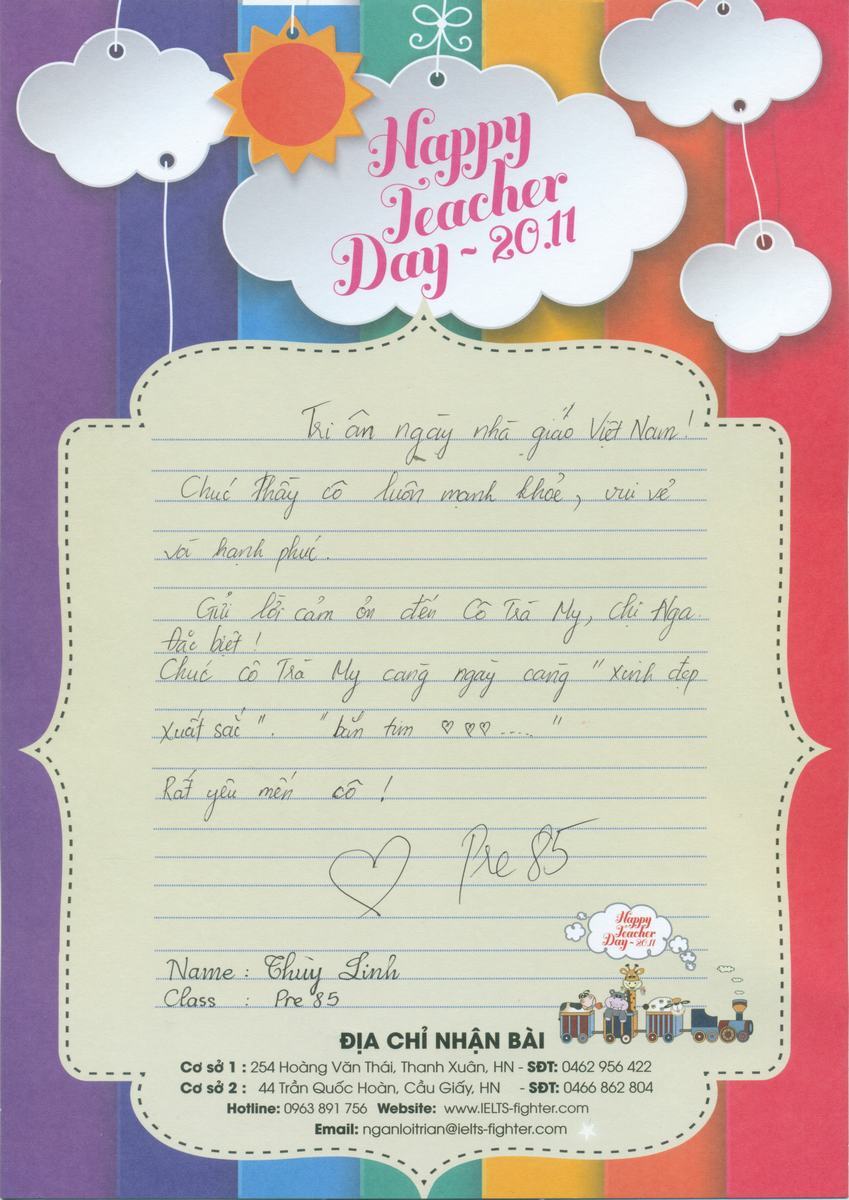 Happy
Teacher
Day ~ 20.11
Tri ân ngày nhà giáo Việt Nam!
Chúc thầy cô luôn mạnh khoẻ, vui vẻ
và hạnh phúc.
Gửi lời cảm ơn đến Cô Trà My, chị Nga.
Đặc biệt!
Chúc cô Trà My càng ngày càng "xinh đẹp
xuất sắc". "bắn tim ♡ ♡♡ ..... "
Rất yêu mến cô !
♡ Pre 85
Happy
Teacher
Day ~ 20.11
Name : Thùy Linh
Class : Pre 85
ĐỊA CHỈ NHẬN BÀI
Cơ sở 1 : 254 Hoàng Văn Thái, Thanh Xuân, HN - SĐT: 0462 956 422
Cơ sở 2 : 44 Trần Quốc Hoàn, Cầu Giấy, HN - SĐT: 0466 862 804
Hotline: 0963 891 756 Website: www.IELTS-fighter.com
Email: nganloitrian@ielts-fighter.com